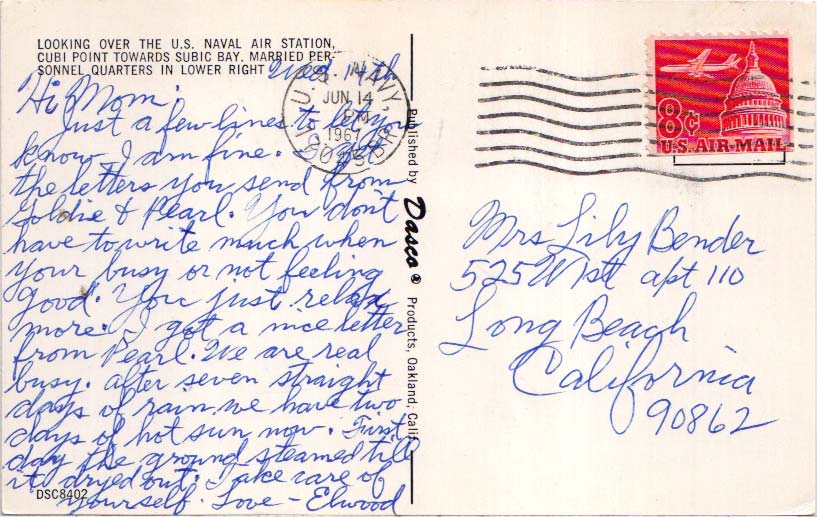 LOOKING OVER THE U.S. NAVAL AIR STATION,
CUBI POINT TOWARDS SUBIC BAY. MARRIED PER-
SONNEL QUARTERS IN LOWER RIGHT
Wed. 14th
Hi Mom:
Just a few lines to let you
know I am fine. I got
the letters you send from
Goldie & Pearl. You don't
have to write much when
your busy or not feeling
good. You just relax
more. I got a nice letter
from Pearl. We are real
busy. after seven straight
days of rain we have two
days of hot sun now. First
day the ground steamed till
it dryed out. Take care of
yourself. Love - Elwood
DSC8402
Published by Dasco® Products, Oakland, Calif.
U.S. NAVY
JUN 14
PM
1967
8¢
U.S. AIR MAIL
Mrs Lily Bender
525 W 1st apt 110
Long Beach
California
90862